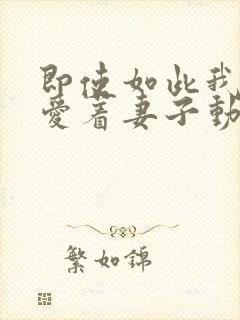 即使如此我
愛着妻子動
繁如錦